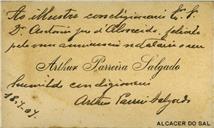 Ao Illustre condiscipulo Ex.
Dr. Antonio José d'Almeida, felicita
pelo seu anniversario natalicio o seu
Arthur Parreira Salgado
humilde condiscipulo
Arthur Parreira Salgado
18-7-07.
ALCACER DO SAL